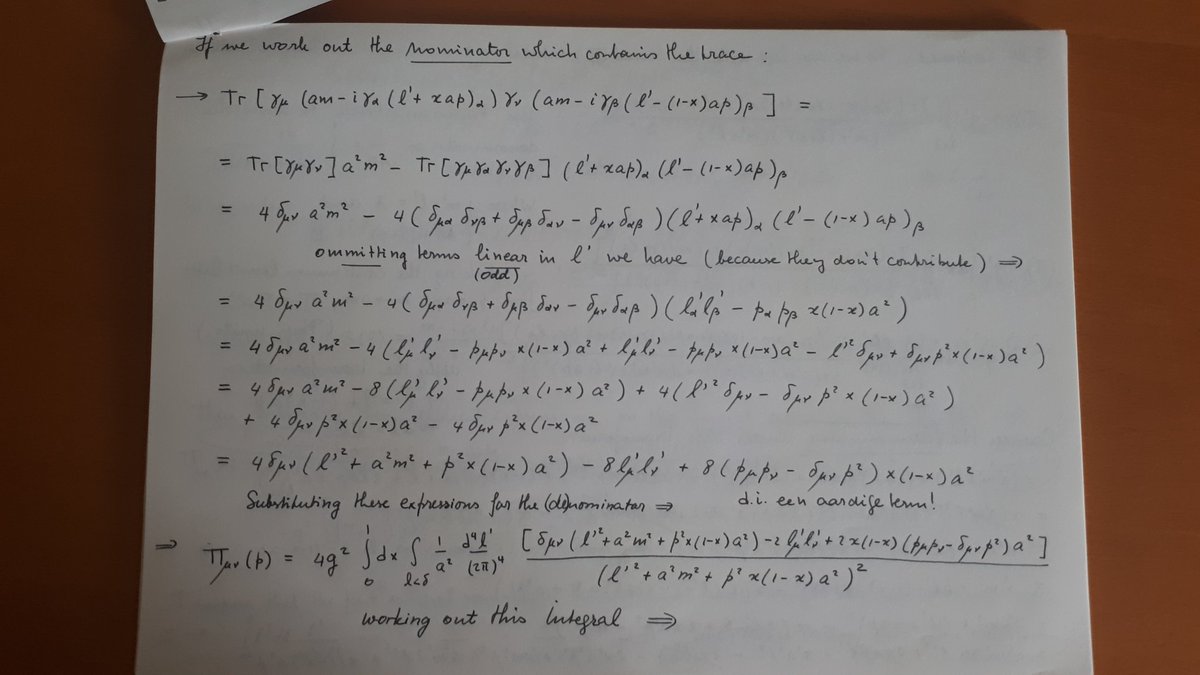 If we work out the nominator which contains the trace :
→ Tr [ γμ (am - i γα (l' + xap)α ) γν (am - i γβ (l' - (1-x)ap)β ] =
= Tr [γμγν] a²m² - Tr [γμγαγνγβ] (l' + xap)α (l' - (1-x)ap)β
= 4 δμν a²m² - 4 ( δμα δνβ + δμβ δαν - δμν δαβ ) (l' + xap)α (l' - (1-x) ap)β
ommitting terms linear in l' we have (because they don't contribute) ⇒
(odd)
= 4 δμν a²m² - 4 ( δμα δνβ + δμβ δαν - δμν δαβ ) ( l'α l'β - pα pβ x(1-x) a² )
= 4 δμν a²m² - 4 ( l'μ l'ν - pμpν x(1-x) a² + l'μ l'ν - pμpν x(1-x) a² - l'² δμν + δμν p² x(1-x) a² )
= 4 δμν a²m² - 8 ( l'μ l'ν - pμpν x(1-x) a² ) + 4 ( l'² δμν - δμν p² x (1-x) a² )
+ 4 δμν p² x(1-x) a² - 4 δμν p² x(1-x) a²
= 4 δμν ( l'² + a²m² + p² x(1-x) a² ) - 8 l'μ l'ν + 8 ( pμpν - δμν p² ) x(1-x) a²
Substituting these expressions for the (de)nominator ⇒ d.i. een aardige term!
⇒ Πμν (p) = 4g² ∫₀¹ dx ∫ l<δ 1/a² d⁴l'/(2π)⁴ [ δμν ( l'² + a²m² + p² x(1-x) a² ) - 2 l'μ l'ν + 2 x(1-x) ( pμpν - δμν p² ) a² ] / ( l'² + a²m² + p² x(1-x) a² )²
working out this integral ⇒